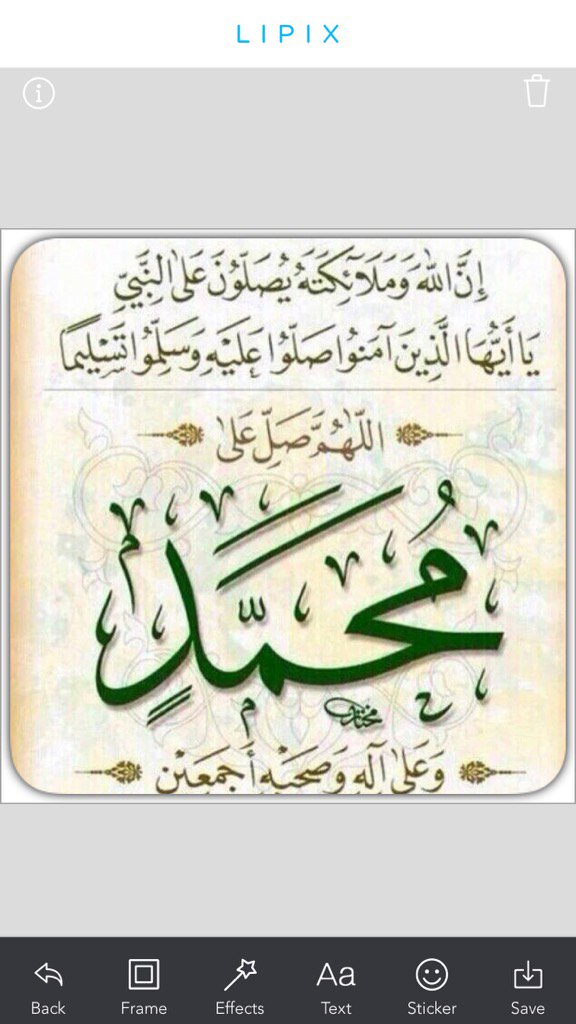 LIPIX
إِنَّ اللّٰهَ وَمَلَآئِكَتَهُ يُصَلُّوْنَ عَلَى النَّبِيِّ
يَا أَيُّهَا الَّذِينَ آمَنُوا صَلُّوْا عَلَيْهِ وَسَلِّمُوْا تَسْلِيمًا
اللّٰهُمَّ صَلِّ عَلَىٰ
مُحَمَّدٍ
وَعَلَىٰ آلِهِ وَصَحْبِهِ أَجْمَعِيْن
Back
Frame
Effects
Aa
Text
Sticker
Save